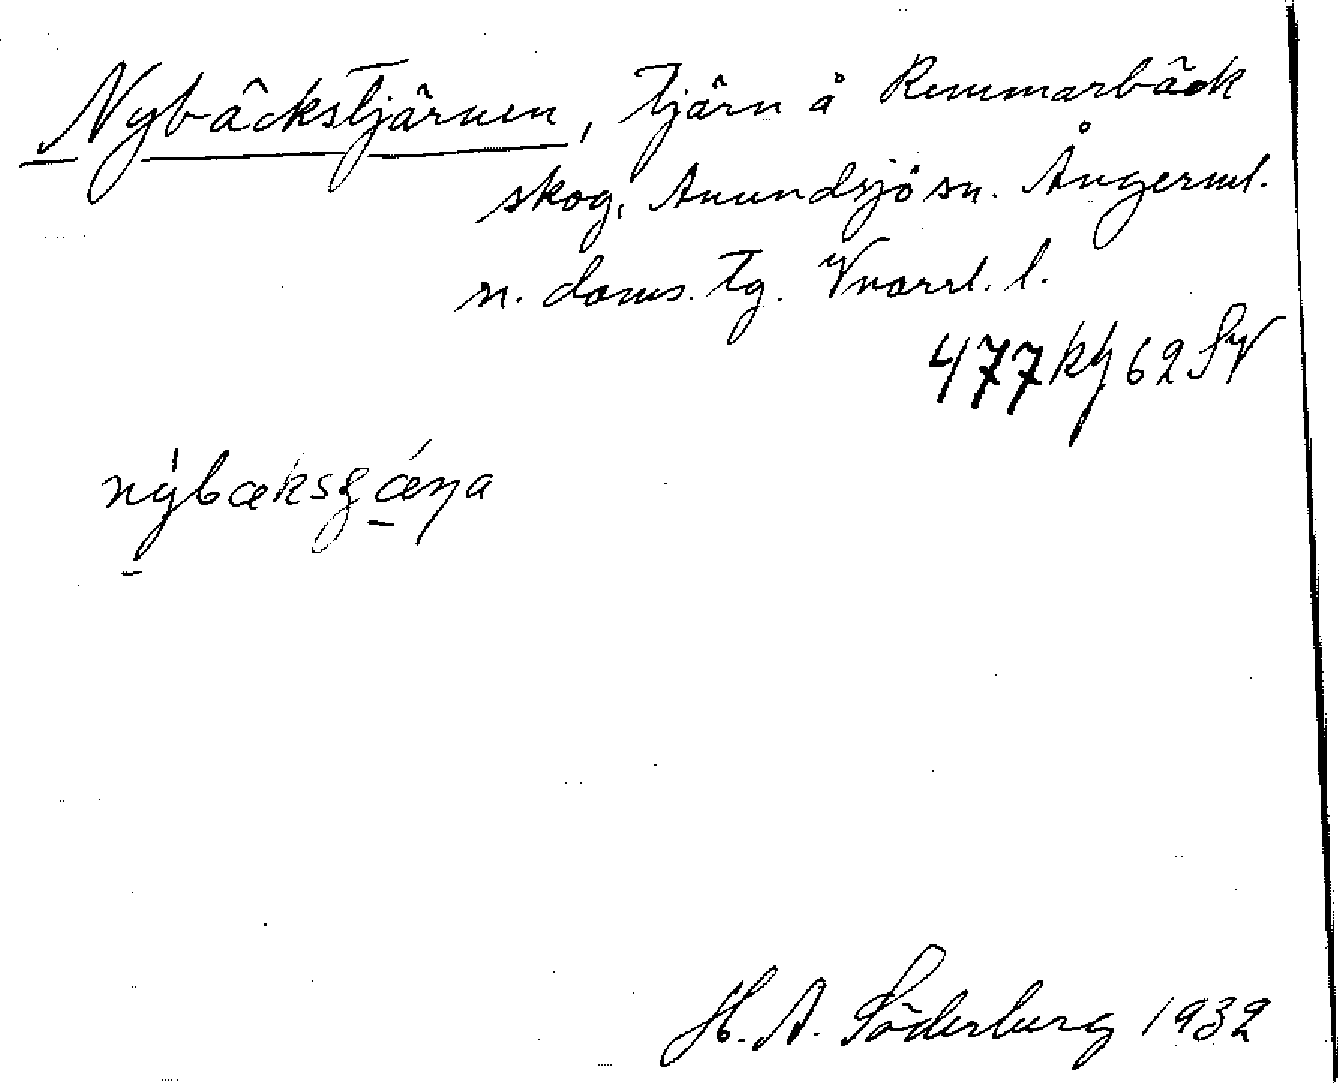 Nybäckstjärnen, tjärn å Remmarbäck
skog, Anundsjö sn. Ångerml.
n. doms. tg. Vnorrl. l.
477 kh 62 SV
nýbæksʒǽṇa
H. A. Söderberg 1932